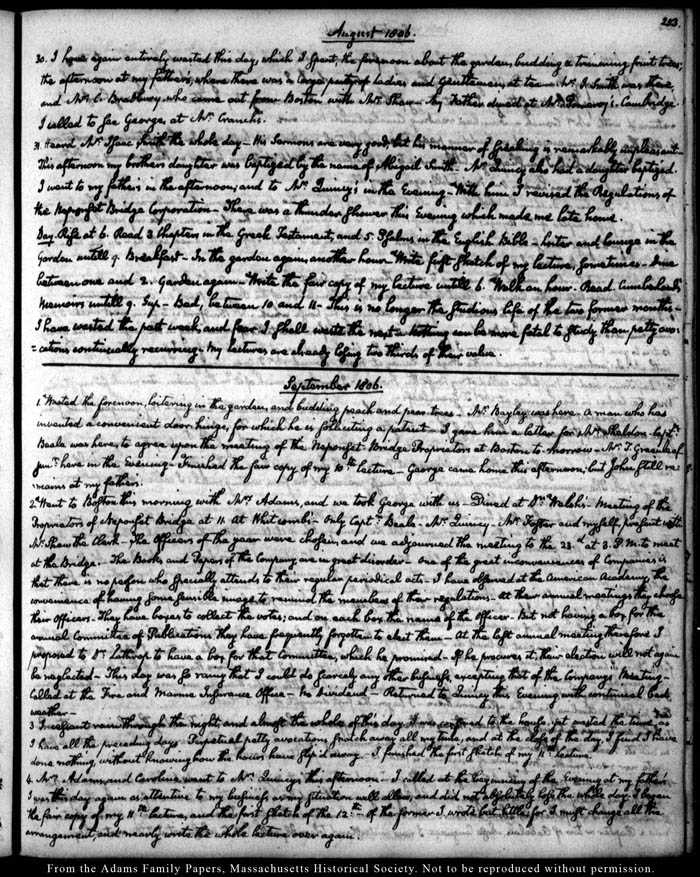 253.
August 1806.
30. I have again entirely wasted this day, which I spent, the forenoon about the garden, budding & trimming fruit trees;
the afternoon at my father's, where there was a large party of ladies and Gentlemen, at tea. Mr. I. Smith was there,
and Mr. C. Bradbury, who came out from Boston with Mr. Shaw. My Father dined at Mr. Cambridge.
I called to see George, at Mr. Cranch's.
31. Heard Mr. Isaac Smith the whole day — His Sermons are very good, but his manner of speaking is remarkably unpleasant —
This afternoon my brother's daughter was baptized by the name of Abigail Smith. Mr. Quincy also had a daughter baptized.
I went to my father's in the afternoon; and to Mr. Quincy's in the Evening — With him I revised the Regulations of
the Neponset Bridge Corporation — There was a thunder shower this Evening which made me late home.
Day. Rise at 6. Read 3 Chapters in the Greek Testament, and 5 Psalms in the English Bible — loiter and lounge in the
Garden untill 9. Breakfast — In the garden again, another hour. Write first sketch of my lecture, sometimes. Dine
between one and 2. Garden again — Write the fair copy of my lecture untill 6. Walk an hour. Read Cumberland's
Memoirs untill 9. Sup — Bed, between 10 and 11 — This is no longer the studious life of the two former months —
I have wasted the past week, and fear I shall waste the next — Nothing can be more fatal to study than petty avo-
=cations continually recurring — My lectures are already losing two thirds of their value.
September 1806.
1. Wasted the forenoon, loitering in the garden, and budding peach and pear trees — Mr. Bayley was here — A man who has
invented a convenient door hinge, for which he is solliciting a patent — I gave him a letter for Mr. Sheldon — Captn.
Beale was here, to agree upon the meeting of the Neponset Bridge Proprietors at Boston to-morrow — Mr. T. Greenleaf
junr. here in the Evening — Finished the fair copy of my 10th lecture — George came home this afternoon; but John still re-
mains at my father's.
2. Went to Boston this morning with Mrs. Adams, and we took George with us — Dined at Dr. Welsh's — Meeting of the
Proprietors of Neponset Bridge at 11. At Whitcomb's — Only Captn. Beale — Mr. Quincy — Mr. Foster and myself, present with
Mr. Shaw the Clerk. The Officers of the year were chosen, and we adjourned the meeting to the 23.d at 3. P.M. to meet
at the Bridge. The Books and Papers of the Company are in great disorder — One of the great inconveniences of Companies is
that there is no person who specially attends to their regular periodical acts — I have observed at the American Academy, the
convenience of having some sensible image to remind the members of their regulations — At their annual meetings they choose
their Officers — They have boxes to collect the votes; and on each box the name of the Officer — But not having a box for the
annual Committee of Publications they have frequently forgotten to elect them — At the last annual meeting therefore I
proposed to Dr. Lathrop to have a box for that Committee, which he promised — If he procures it, their election will not again
be neglected — This day was so rainy that I could do scarcely any other business, excepting that of the Company's Meeting —
Called at the Fire and Marine Insurance Office — No Dividend — Returned to Quincy this Evening with continual bad
weather —
3. Incessant rain through the night, and almost the whole of this day. I was confined to the house, yet wasted the time, as
I have all the preceding days — Perpetual petty avocations snatch away all my time, and at the close of the day, I find I have
done nothing, without knowing how the hours have slip'd away — I finished the first sketch of my 11th lecture.
4. Mrs. Adams, and Caroline went to Mr. Quincy's this afternoon — I called at the beginning of the Evening at my father's
I was this day again as attentive to my business as my situation will allow, and did not absolutely lose the whole day. I began
the fair copy of my 11th lecture, and the first sketch of the 12th — of the former I wrote but little; for I must change all the
arrangement, and nearly write the whole lecture over again.
From the Adams Family Papers, Massachusetts Historical Society. Not to be reproduced without permission.